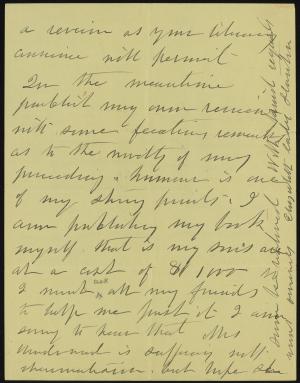 a review as your literary
conscience will permit
In the meantime
publish my own review
with some facetious remarks
as to the novelty of my
proceeding. Humour is one
of my strong points. I
am publishing my book
myself that is my sons are
at a cost of $1000 so
I must ask my friends
to help me push it. I am
sorry to hear that Mrs
Underwood is suffering with
rheumatism. but hope she
soon be relieved With kind regards
sincerely Elizabeth Cady Stanton